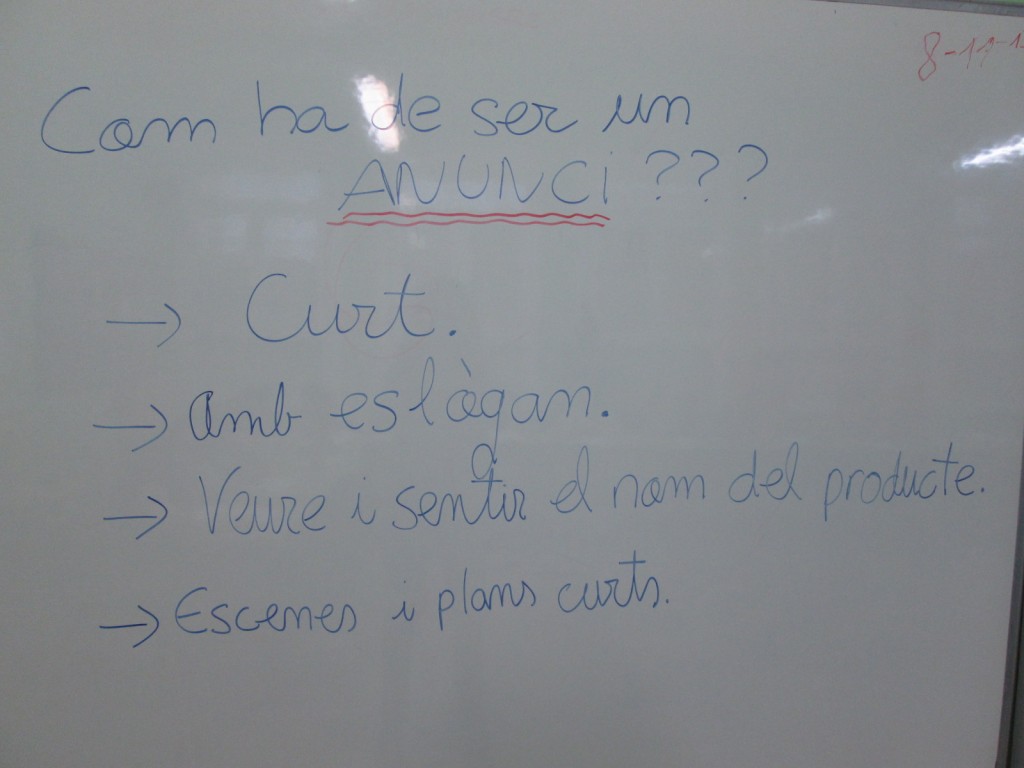 8-11-1
Com ha de ser un
ANUNCi ???
→ Curt.
→ Amb eslògan.
→ Veure i sentir el nom del producte.
→ Escenes i plans curts.